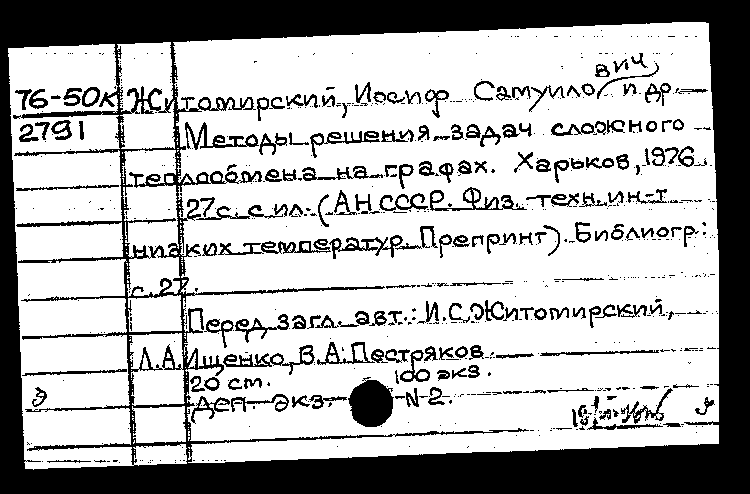 76-50к Житомирский, Иосиф Самуилович и др.
2791 Методы решения задач сложного
теплообмена на графах. Харьков, 1976.
27с. с ил. (АН СССР. Физ.-техн. ин-т
низких температур. Препринт). Библиогр.:
с. 27.
Перед загл. авт.: И.С. Житомирский,
Л.А. Ищенко, В.А. Пестряков.
20 cm. 100 экз.
Деп. экз. N 2.